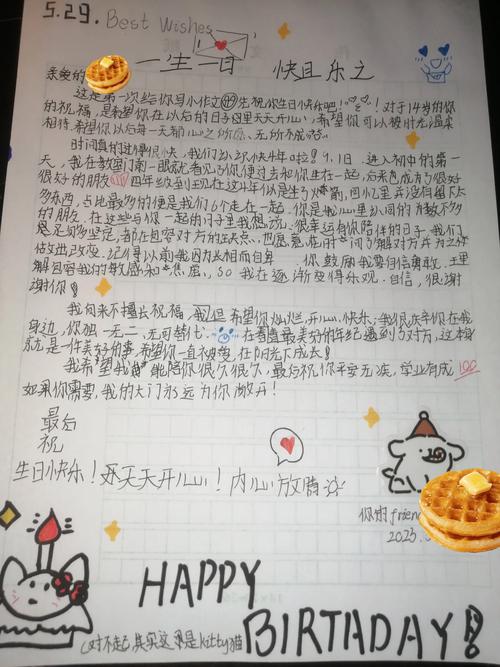 5.29. Best Wishes
一生一日 快且乐之
亲爱的
这是第一次给你写小作文 先祝你生日快乐吧! 对于14岁的你
的祝福,是希望你在以后的日子里天天开心,希望你可以被时光温柔
相待.希望你以后每一天都心之所愿,无所不成.
时间真的过得很快,我们认识快4年啦! 9.1日,进入初中的第一
天,我在教室门前一眼就看见了你便过去和你坐在一起,后来也成为了很好
很好的朋友 四年级到现在这4年
多东西,占比最多的便是我们6个走在一起.你是我心里认同的为数不多
的朋友.在这些与你一起的日子里我想说:很幸运有你陪伴的日子.我们
足够多坚定,都在包容对方的缺点,也愿意在时间了解对方并为之
做出改变.记得以前我因为长相而自卑 你鼓励我要自信勇敢.理
解包容我的敏感和焦虑,so 我在逐渐变得乐观.自信,很谢
谢你!
我向来不擅长祝福,但希望你灿烂,开心,快乐;我很庆幸你在我
身边,你独一无二、无可替代. 在最美好的年纪遇到了对方,这本身
就是一件美好的事,希望你一直被爱,在阳光下成长!
我希望我能陪你很久很久,最后祝你平安无疾,学业有成 100
如果你需要,我的大门永远为你敞开!
最后
祝
生日快乐!天天开心!内心放晴
你的friend
2023.
HAPPY
BIRTHADAY!
(对不起其实这是kitty猫